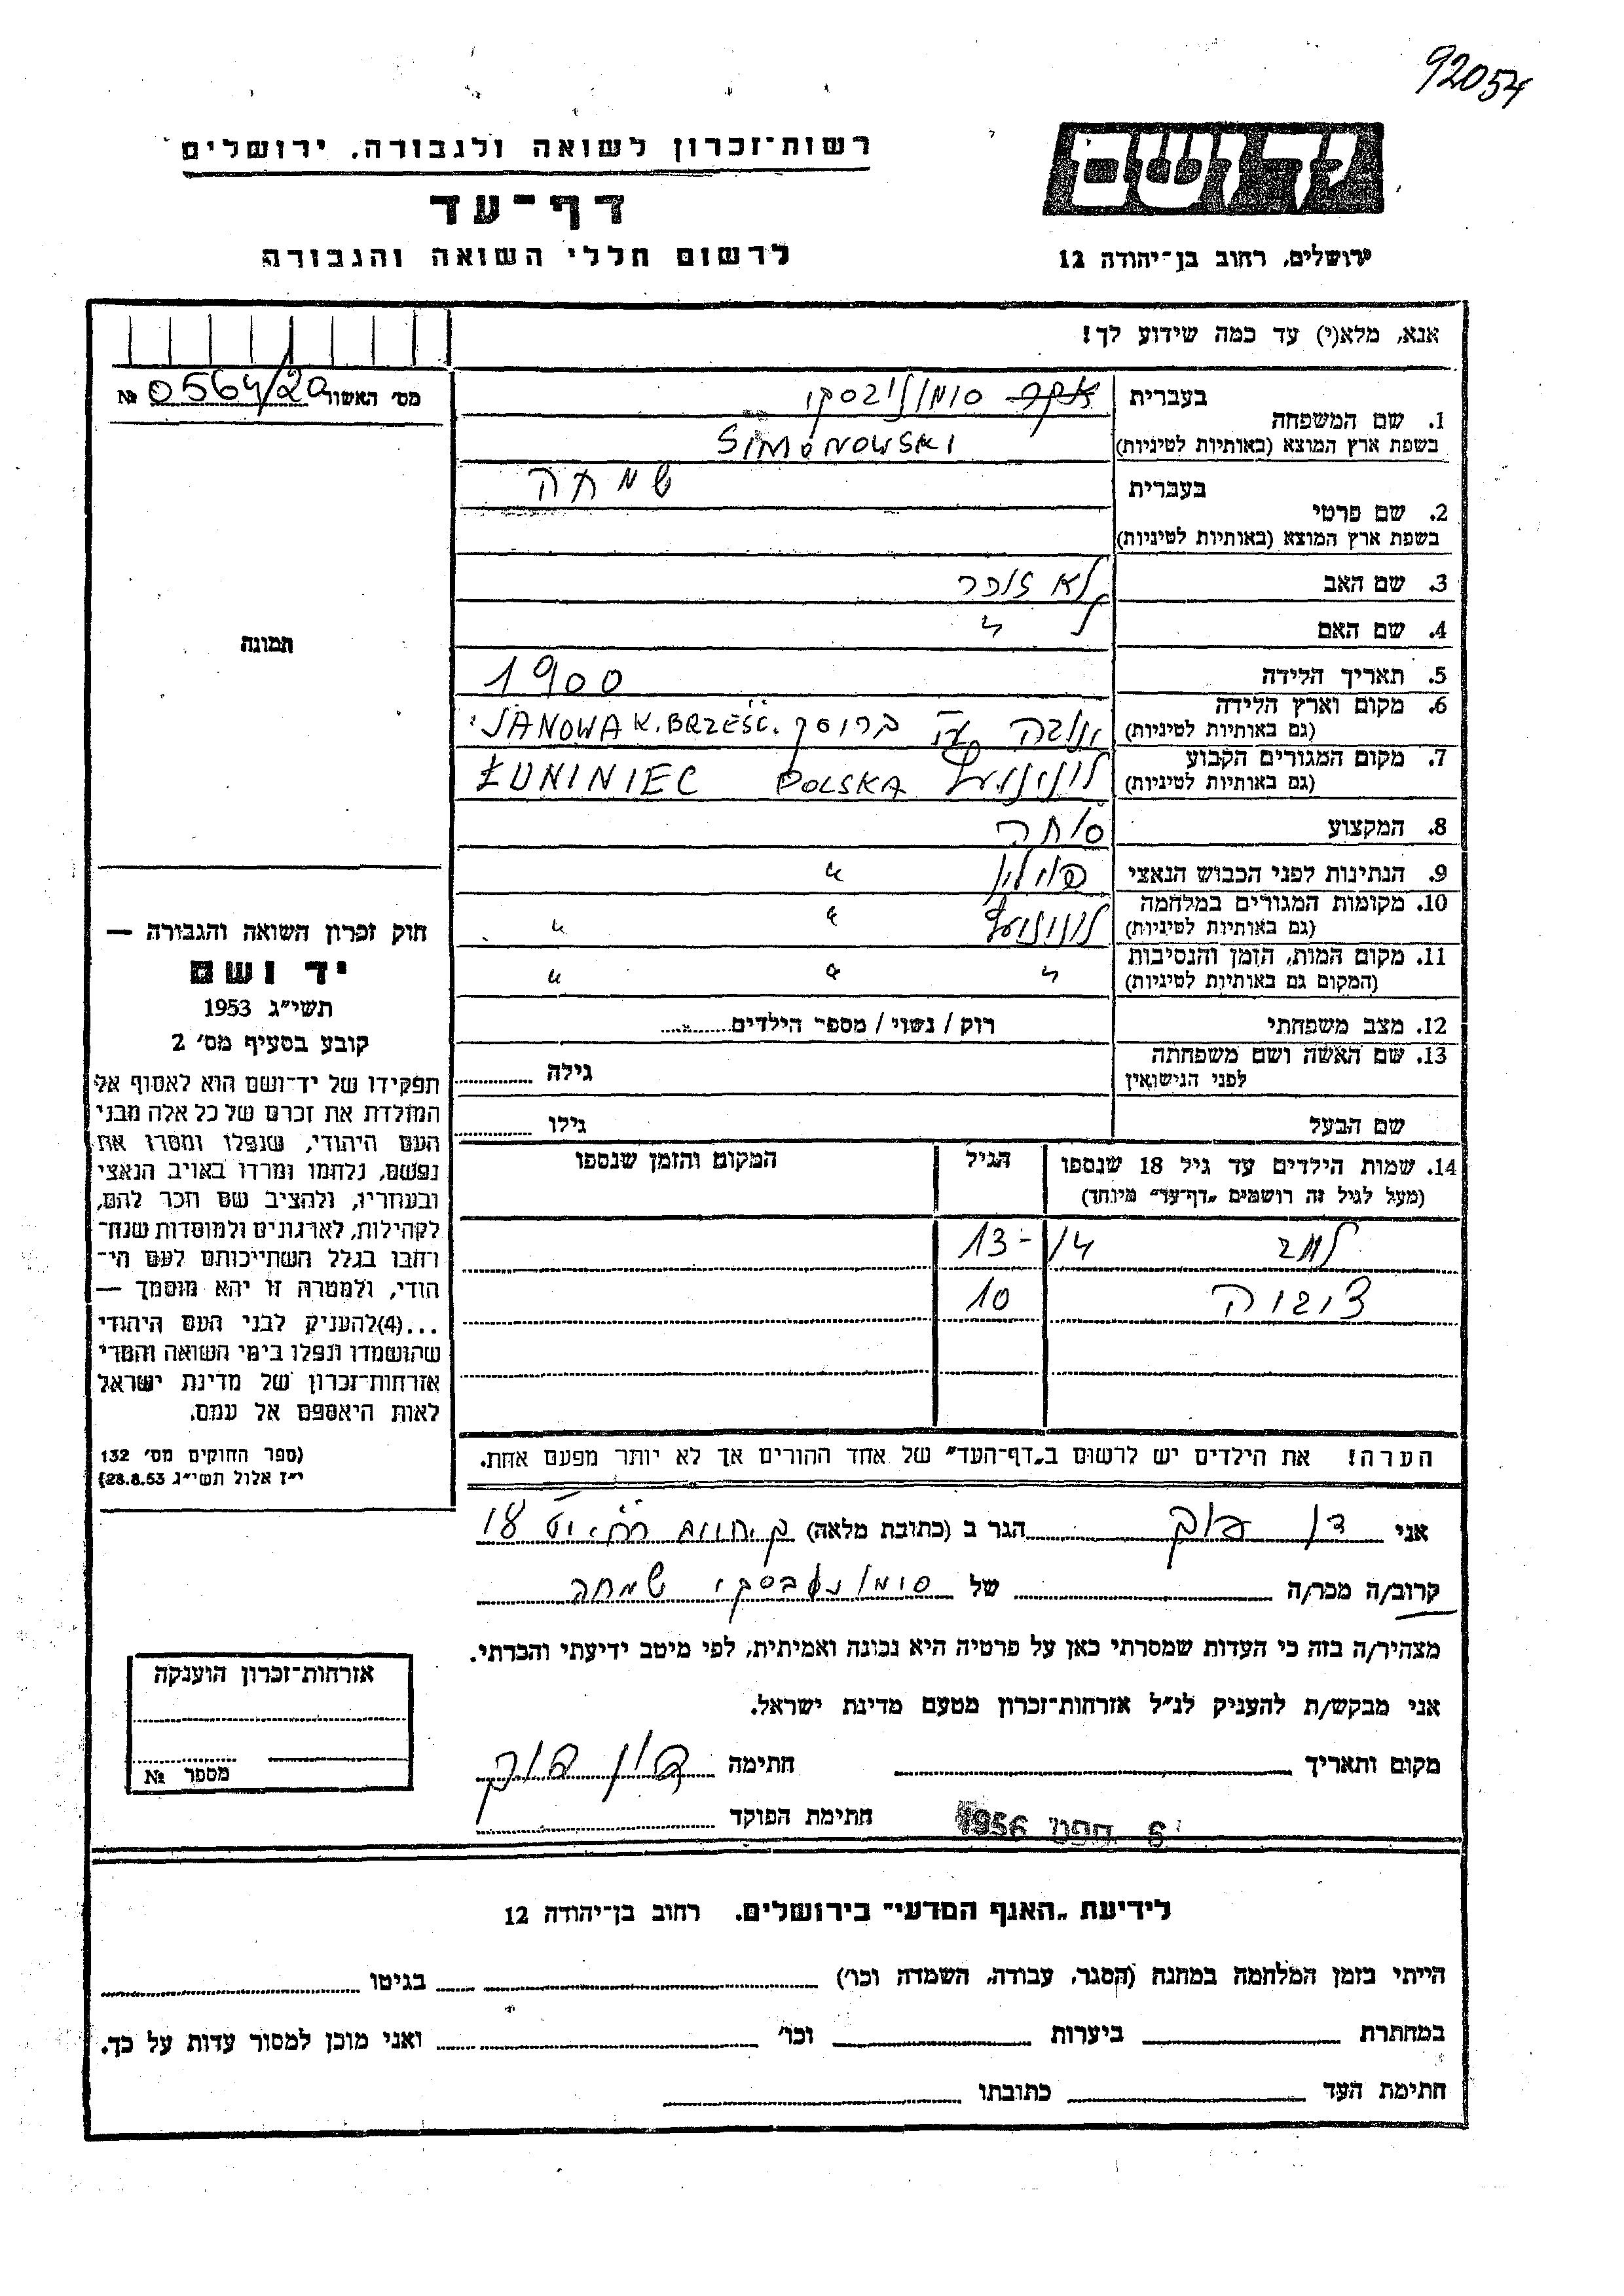 92054
רשות־זכרון לשואה ולגבורה, ירושלים
דף־עד
לרשום חללי השואה והגבורה
יד ושם
ירושלים, רחוב בן־יהודה 12
אנא, מלא(י) עד כמה שידוע לך!
מס׳ האשור 0564/20 №
1. שם המשפחה
בעברית סומונובסקי
בשפת ארץ המוצא (באותיות לטיניות) SIMONOWSKI
2. שם פרטי
בעברית שמחה
בשפת ארץ המוצא (באותיות לטיניות)
3. שם האב לא זוכר
4. שם האם " "
5. תאריך הלידה 1900
6. מקום וארץ הלידה
(גם באותיות לטיניות) ינובה ברוסק JANOWA K. BRZEŚĆ.
7. מקום המגורים הקבוע
(גם באותיות לטיניות) לונינץ POLSKA ŁUNINIEC
8. המקצוע סוחר
9. הנתינות לפני הכבוש הנאצי פולין "
10. מקומות המגורים במלחמה
(גם באותיות לטיניות) לונינץ " "
11. מקום המות, הזמן והנסיבות
(המקום גם באותיות לטיניות) " " "
12. מצב משפחתי רוק / נשוי / מספר הילדים
13. שם האשה ושם משפחתה
לפני הנישואין גילה
שם הבעל גילו
14. שמות הילדים עד גיל 18 שנספו
(מעל לגיל זה רושמים „דף־עד” מיוחד)
הגיל
המקום והזמן שנספו
13-14
10
הערה! את הילדים יש לרשום ב„דף־העד” של אחד ההורים אך לא יותר מפעם אחת.
תמונה
חוק זכרון השואה והגבורה —
יד ושם
תשי״ג 1953
קובע בסעיף מס׳ 2
תפקידו של יד־ושם הוא לאסוף אל
המולדת את זכרם של כל אלה מבני
העם היהודי, שנפלו ומסרו את
נפשם, נלחמו ומרדו באויב הנאצי
ובעוזריו, ולהציב שם וזכר להם,
לקהילות, לארגונים ולמוסדות שנח־
רחבו בגלל השתייכותם לעם הי־
הודי, ולמטרה זו יהא מוסמך —
...(4)להעניק לבני העם היהודי
שהושמדו ונפלו בימי השואה והמרי
אזרחות־זכרון של מדינת ישראל
לאות היאספם אל עמם.
(ספר החוקים מס׳ 132
י״ז אלול תשי״ג 28.8.53)
אני דן הגר ב (כתובת מלאה)
קרוב/ה מכר/ה של סימונובסקי שמחה
מצהיר/ה בזה כי העדות שמסרתי כאן על פרטיה היא נכונה ואמיתית, לפי מיטב ידיעתי והכרתי.
אני מבקש/ת להעניק לנ״ל אזרחות־זכרון מטעם מדינת ישראל.
מקום ותאריך חתימה
חתימת הפוקד
1956
אזרחות־זכרון הוענקה
מספר №
לידיעת „האגף המדעי” בירושלים. רחוב בן־יהודה 12
הייתי בזמן המלחמה במחנה (הסגר, עבודה, השמדה וכו׳) בגיטו
במחתרת ביערות וכו׳ ואני מוכן למסור עדות על כך.
חתימת העד כתובתו